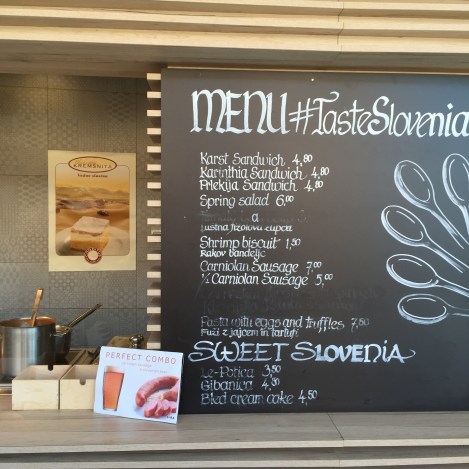 MENU #TasteSlovenia
Karst Sandwich 4,80
Karinthia Sandwich 4,80
Prlekija Sandwich 4,80
Spring salad 6,00
a
Shrimp biscuit 1,50
Rakov bandelje
Carniolan Sausage 7,00
½ Carniolan Sausage 5,00
Pasta with eggs and truffles 7,50
Fuži z jajcem in tartufi
SWEET SLOVENIA
Le-Potica 3,50
Gibanica 4,50
Bled cream cake 4,50
KREMŠNITA
PERFECT COMBO